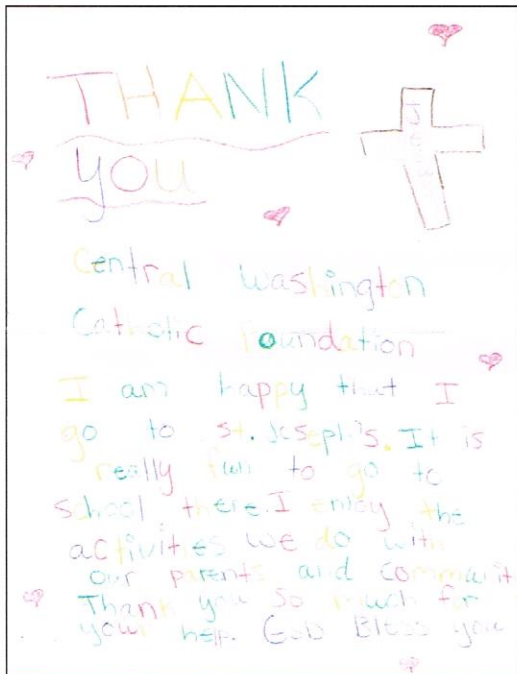 THANK
YOU
Central Washington
Catholic Foundation
I am happy that I
go to St. Joseph's. It is
really fun to go to
school there. I enjoy the
activities we do with
our parents and communit
Thank you so much for
your help. God Bless you